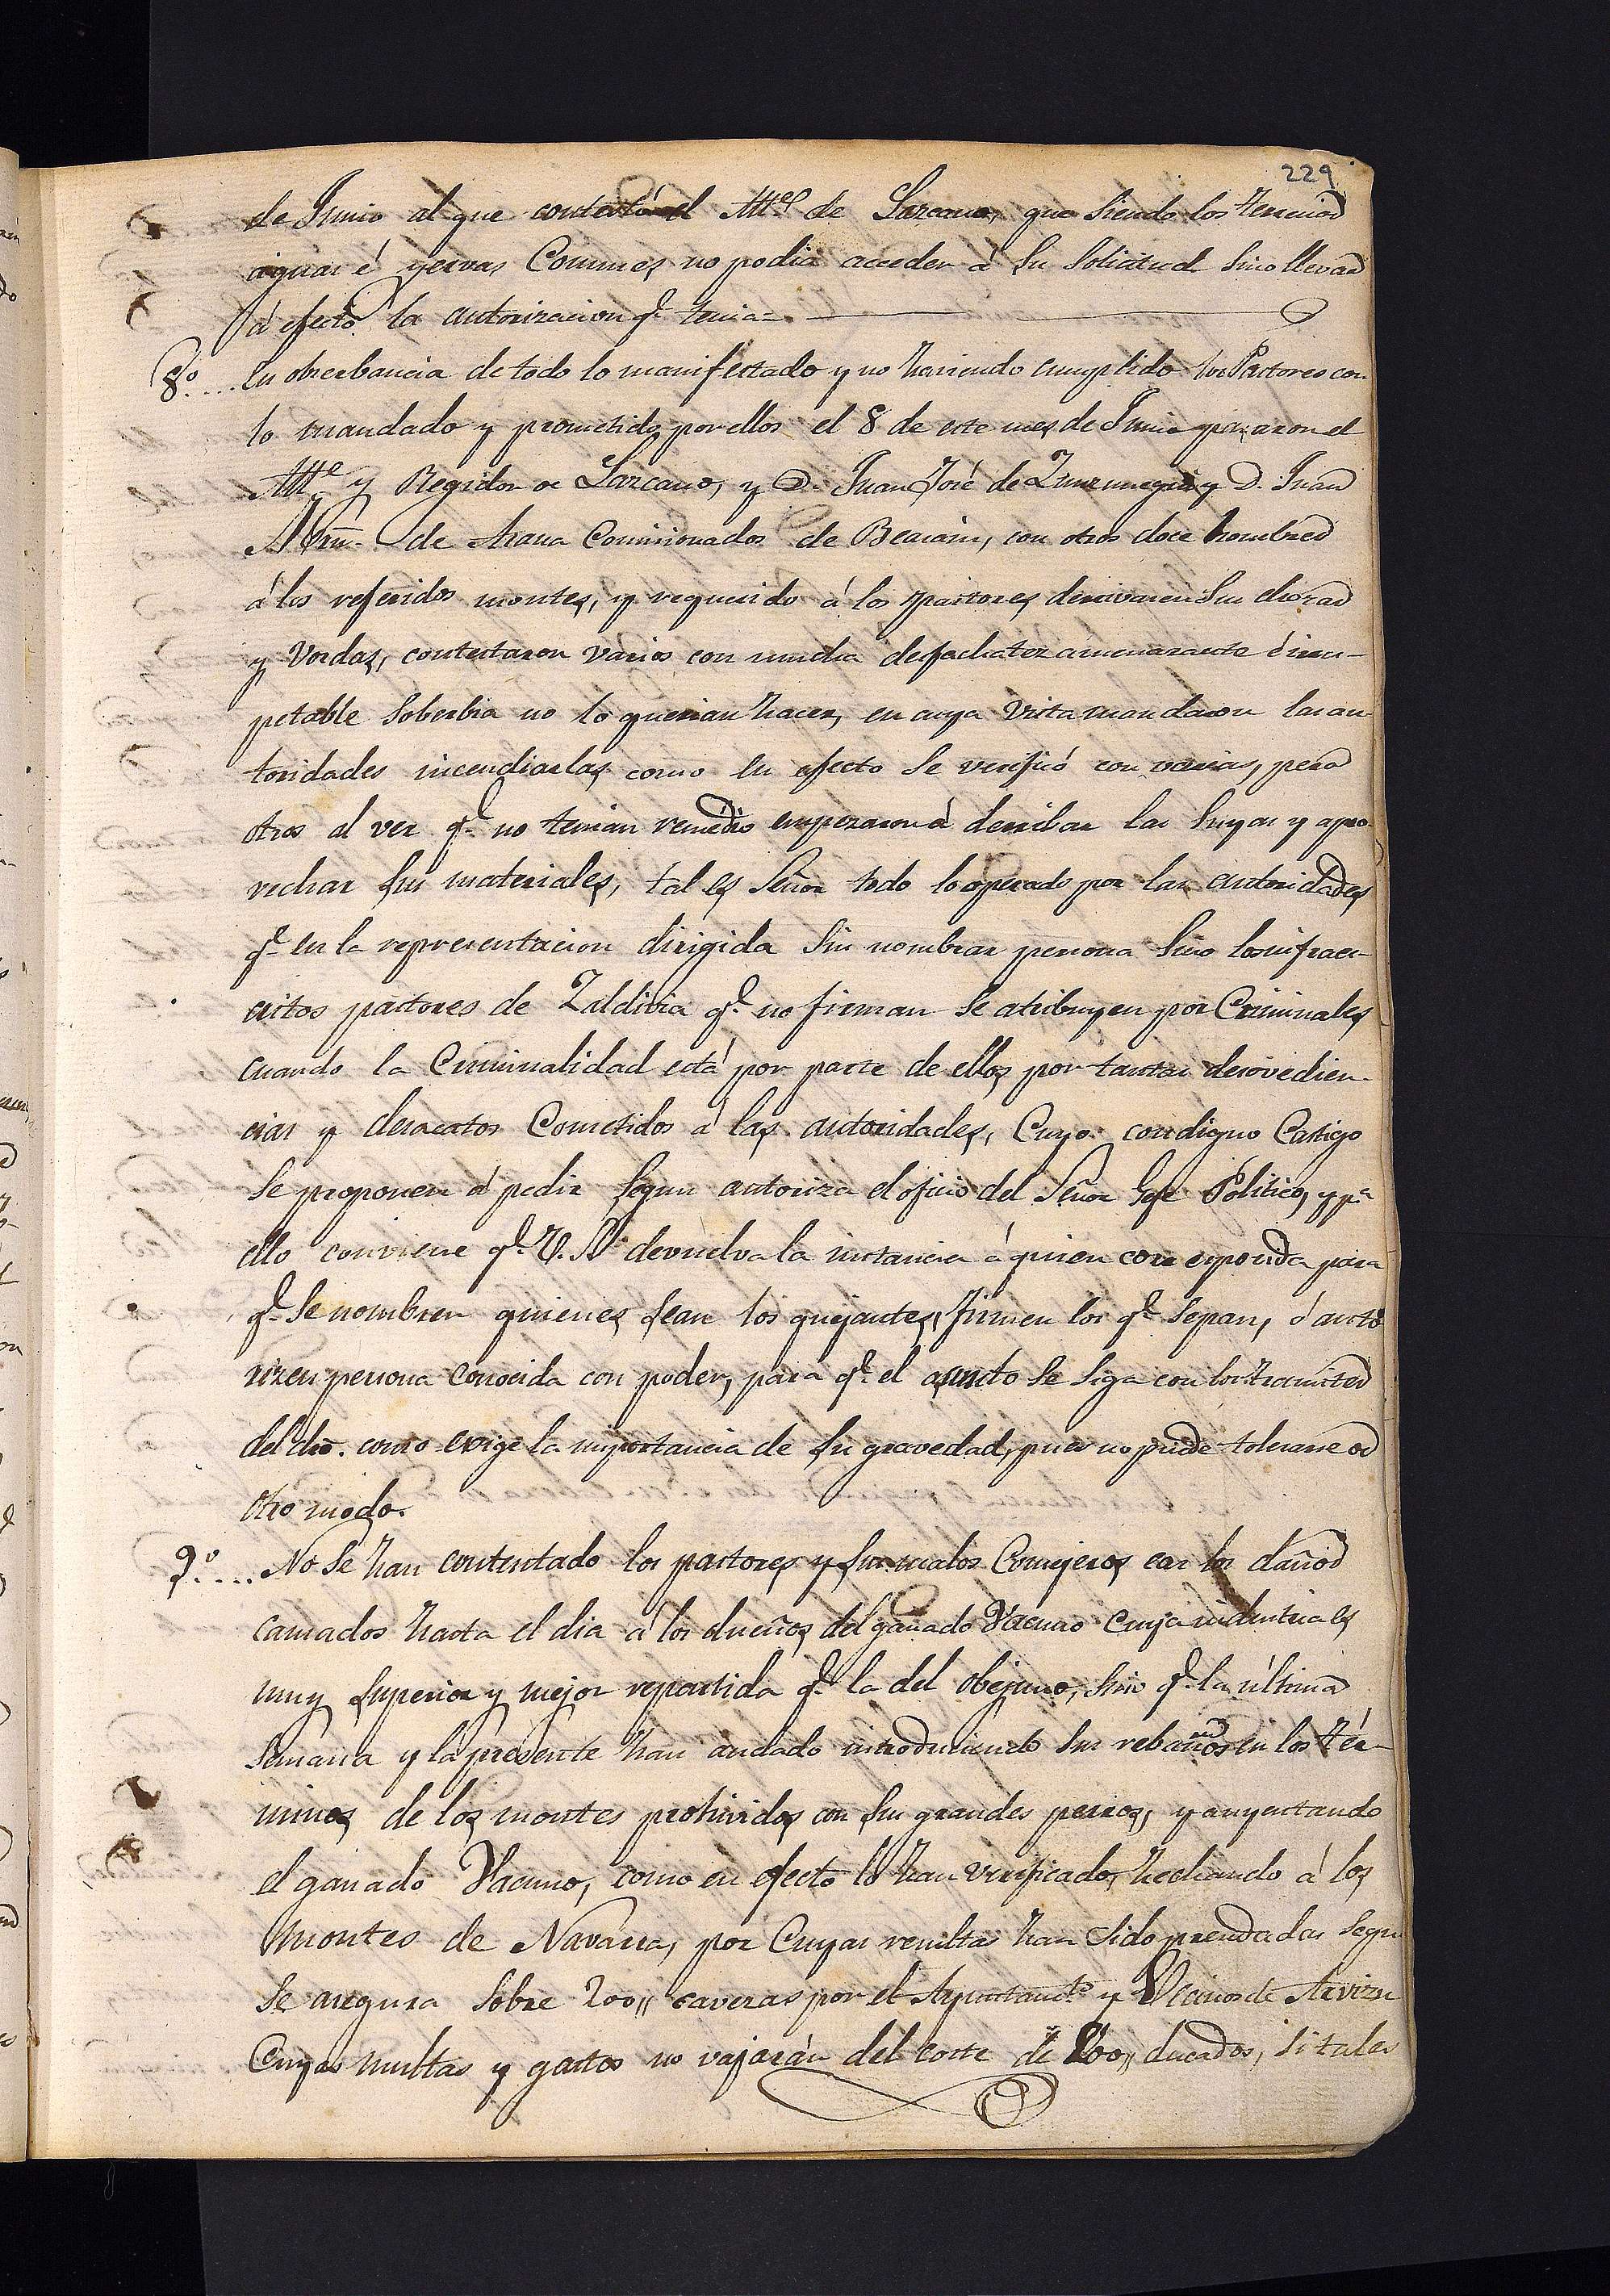 229
de Junio al que contestó el Alt.e de Lazcano, que siendo los terrenos
aguas é yervas Comunes no podia acceder á su solicitud sino llevar
á efecto la autorizacion q.e tenia=.
8.º... En obserbancia de todo lo manifestado y no haviendo cumplido los Pastores con
lo mandado y prometido por ellos el 8 de este mes de Junio pasaron el
Alt.e y Regidor de Lazcano, y D. Juan José de Zurrunegui y D. Juan
Mrn. de Arana Comisionados de Beasain, con otros doce hombres
á los referidos montes, y requerido á los pastores derrivasen sus chozas
y Vordas, contestaron varios con mucha desfachatez amenazante é ines-
petable Soberbia no lo querian hacer, en cuya Vista mandaron las au
toridades incendiarlas como en efecto se verificó con varias, pero
otros al ver q.e no tenian remedio empezaron á derribar las suyas y apro
vechar sus materiales, tal es Señor todo lo operado por las autoridades
q.e en la representacion dirigida sin nombrar persona sino los infraes-
critos pastores de Zaldivia q.e no firman se atribuyen por Criminales
cuando la Criminalidad está por parte de ellos por tantas desovedien-
cias y desacatos Cometidos á las autoridades, Cuyo condigno Castigo
se proponen á pedir segun autoriza el oficio del Señor Gefe Politico, y p.a
ello conviene q.e V.S. devuelva la instancia á quien corresponda para
q.e se nombren quienes sean los quejantes, firmen los q.e sepan, ó auto
rizen persona conocida con poder, para q.e el asunto se siga con los tramites
del dro. como exige la importancia de su gravedad, pues no puede tolerarse de
otro modo.
9.º.... No se han contentado los pastores y sus malos Consejeros con los daños
causados hasta el dia á los dueños del ganado Vacuno cuya industria es
muy superior y mejor repartida q.e la del obejuno, sino q.e la última
semana y la presente han andado introduciendo sus rebaños en los tér-
minos de los montes prohividos con sus grandes perros, y auyentando
el ganado Vacuno, como en efecto lo han verificado, hechando á los
montes de Navarra, por Cuyas resultas han sido prendadas segun
se asegura sobre 200,, caveras por el Ayuntam.to y Vecinos de Arvizu
Cuyas multas y gastos no vajarán del coste de 200,, ducados, si tales